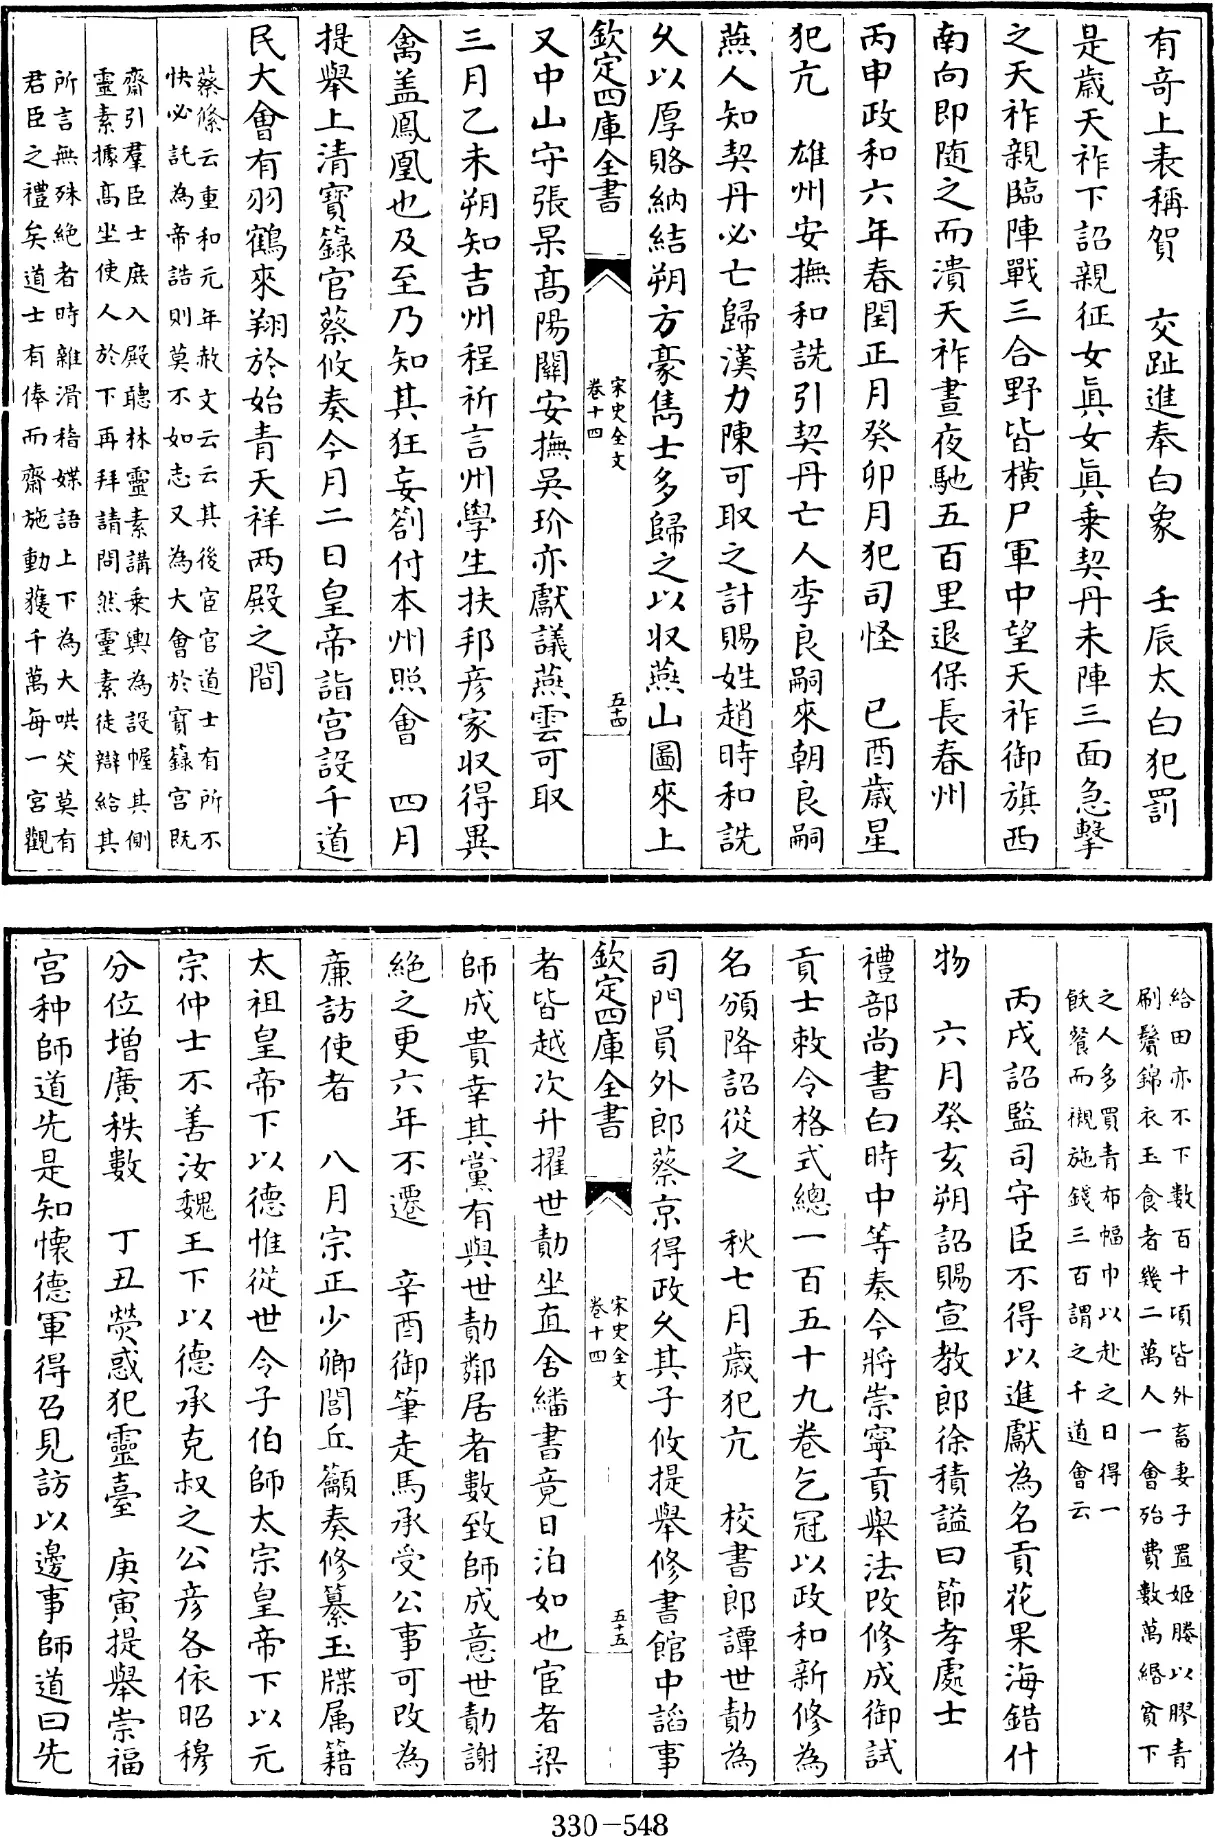 有奇上表稱賀　交趾進奉白象　壬辰太白犯罰
是歲天祚下詔親征女真女真乗契丹未陣三面急擊
之天祚親臨陣戰三合野皆橫尸軍中望天祚御旗西
南向即随之而潰天祚晝夜馳五百里退保長春州
丙申政和六年春閏正月癸卯月犯司怪　已酉歲星
犯亢　雄州安撫和詵引契丹亡人李良嗣來朝良嗣
燕人知契丹必亡歸漢力陳可取之計賜姓趙時和詵
乆以厚賂納結朔方豪雋士多歸之以収燕山圖來上
欽定四庫全書
宋史全文
卷十四
五十四
又中山守張杲髙陽闗安撫吳玠亦獻議燕雲可取
三月乙未朔知吉州程祈言州學生扶邦彦家収得異
禽盖鳳凰也及至乃知其狂妄劄付本州照會　四月
提舉上清寳籙宫蔡攸奏今月二日皇帝詣宫設千道
民大會有羽鶴來翔於始青天祥兩殿之間
蔡絛云重和元年赦文云云其後宦官道士有所不
快必託為帝誥則莫不如志又為大會於寳籙宫既
齋引羣臣士庶入殿聽林靈素講乗輿為設幄其側
靈素據髙坐使人於下再拜請問然靈素徒辯給其
所言無殊絶者時雜滑稽媟語上下為大哄笑莫有
君臣之禮矣道士有俸而齋施動獲千萬每一宫觀
給田亦不下數百十頃皆外畜妻子置姬媵以膠青
刷鬢錦衣玉食者幾二萬人一會殆費數萬緡貧下
之人多買青布幅巾以赴之日得一
飫餐而襯施錢三百謂之千道會云
丙戌詔監司守臣不得以進獻為名貢花果海錯什
物　六月癸亥朔詔賜宣教郎徐積謚曰節孝處士
禮部尚書白時中等奏今將崇寧貢舉法改修成御試
貢士敕令格式總一百五十九卷乞冠以政和新修為
名頒降詔從之　秋七月歲犯亢　校書郎譚世勣為
司門員外郎蔡京得政乆其子攸提舉修書館中諂事
欽定四庫全書
宋史全文
卷十四
五十五
者皆越次升擢世勣坐直舍繙書竟日泊如也宦者梁
師成貴幸其黨有與世勣鄰居者數致師成意世勣謝
絶之更六年不遷　辛酉御筆走馬承受公事可改為
亷訪使者　八月宗正少卿閭丘籲奏修纂玉牒属籍
太祖皇帝下以德惟從世令子伯師太宗皇帝下以元
宗仲士不善汝魏王下以德承克叔之公彦各依昭穆
分位增廣秩數　丁丑熒惑犯靈臺　庚寅提舉崇福
宫种師道先是知懐德軍得召見訪以邊事師道曰先
330-548